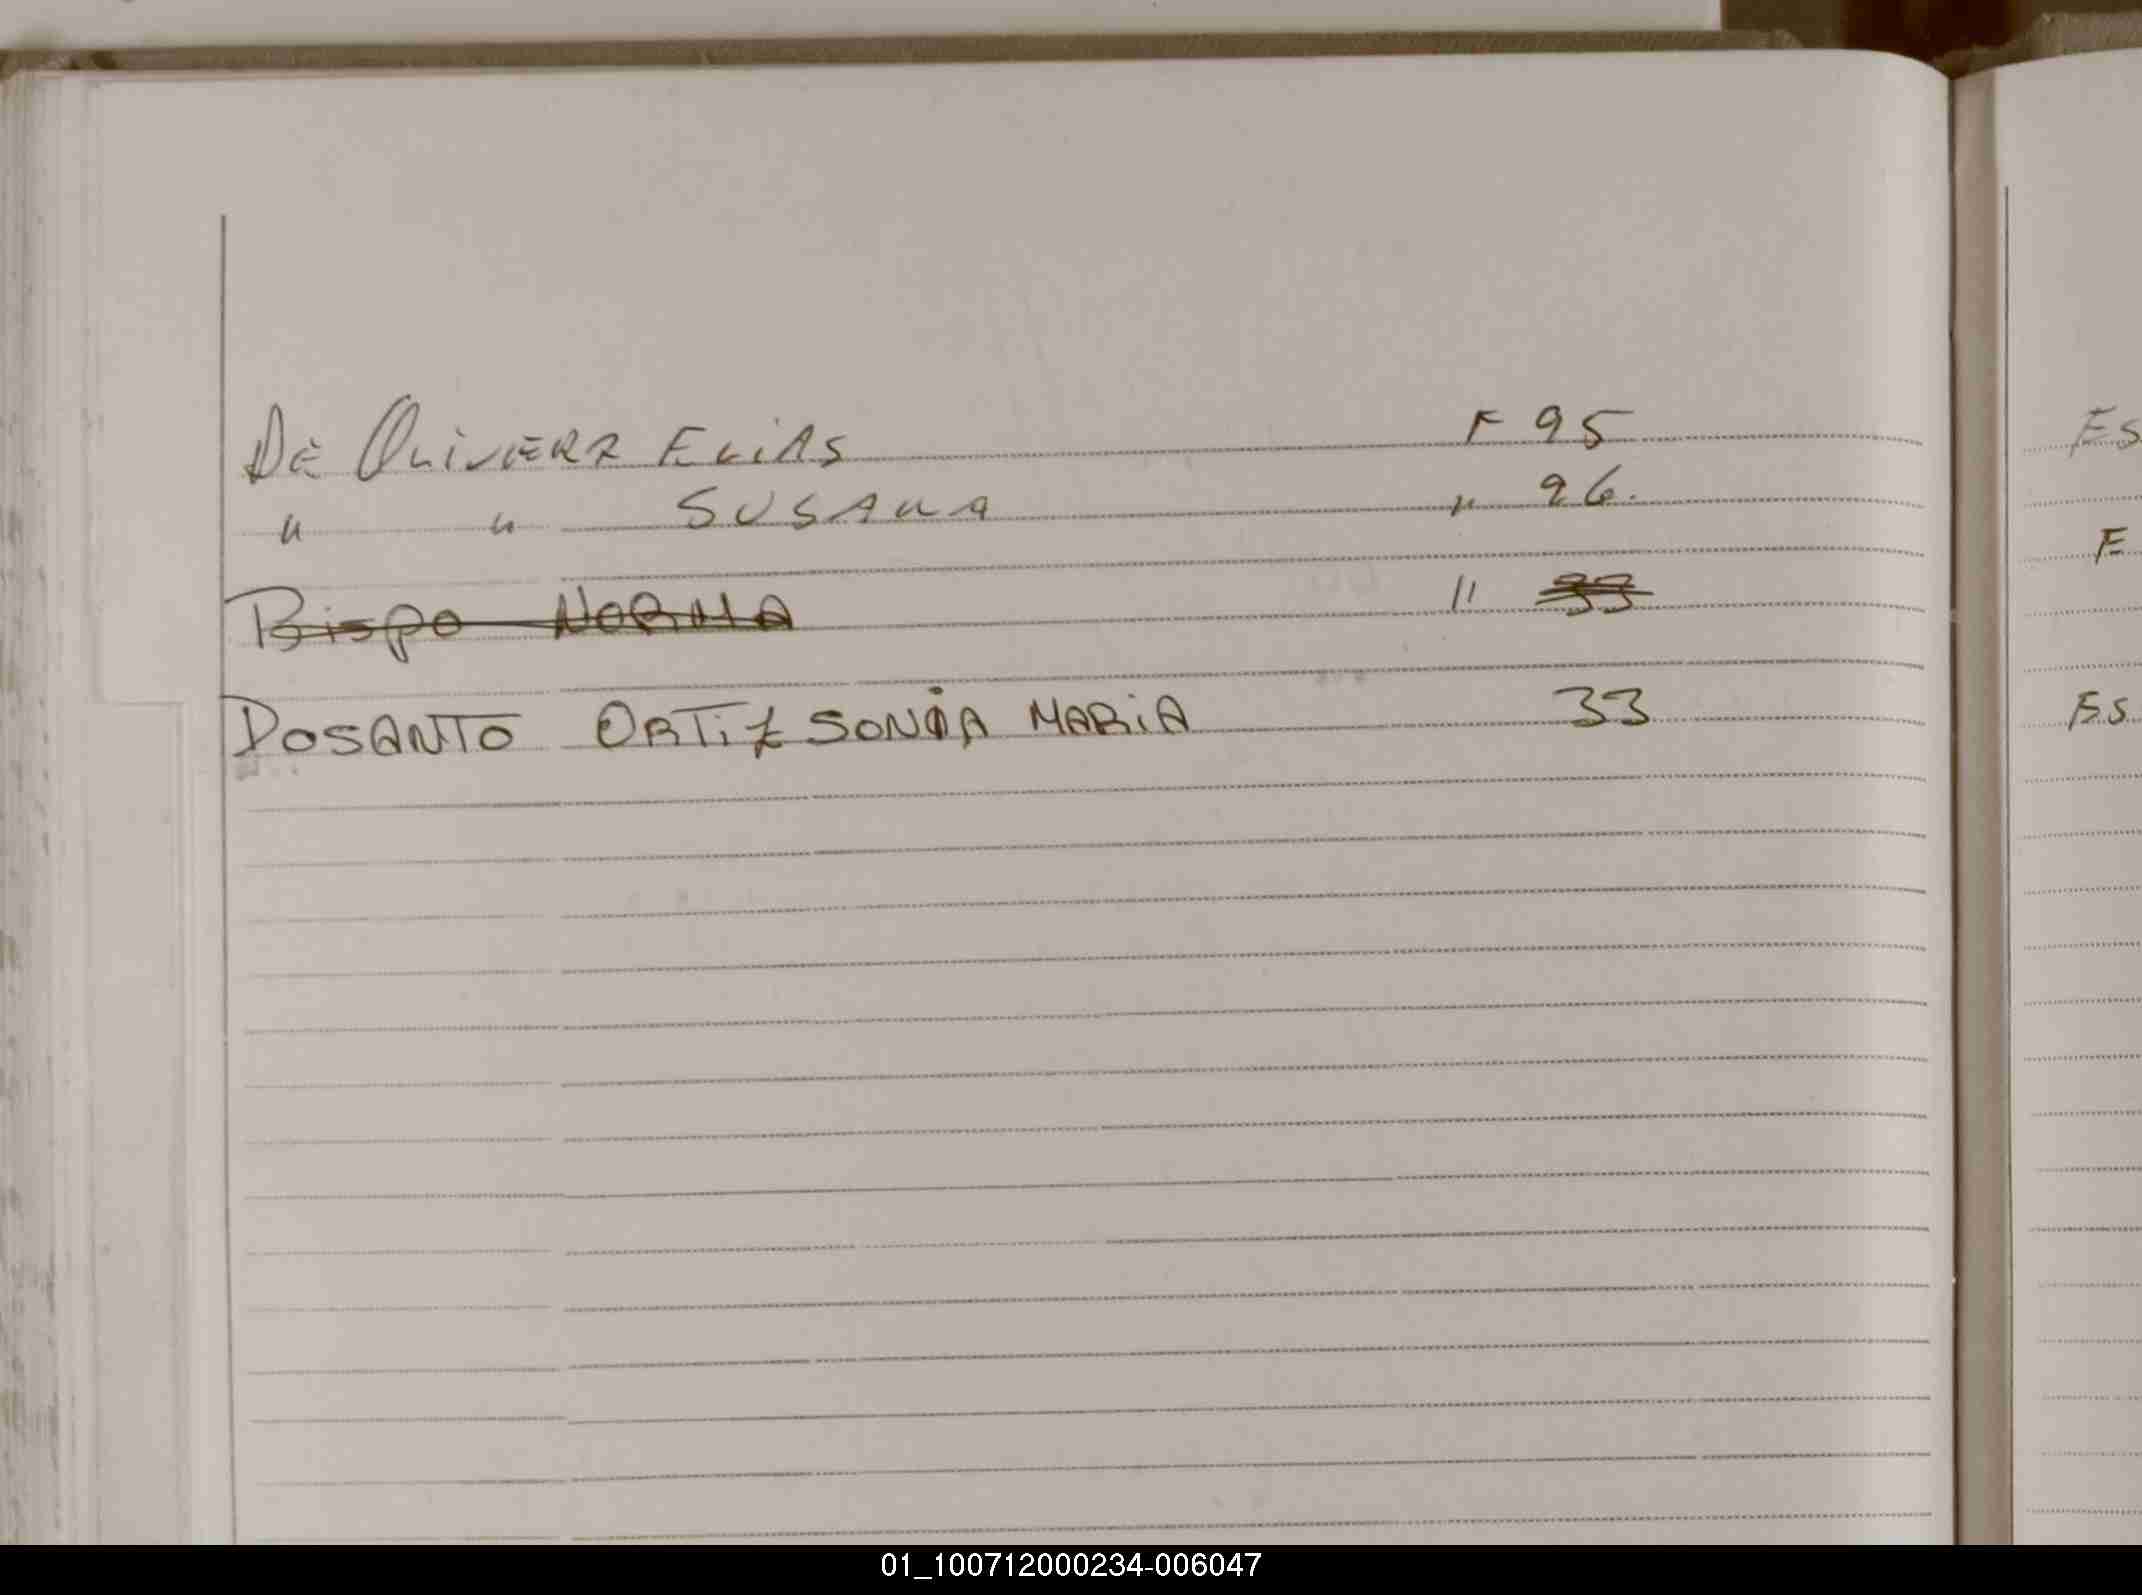 De OLIVERA ELIAS F 95
" " SUSANA " 96.
Bispo NORMA " 33
DOSANTO ORTiZ SONIA MARiA 33
Es
F
Es.
01_100712000234-006047